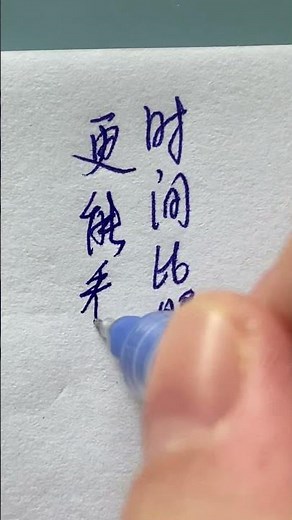 时间比
更能